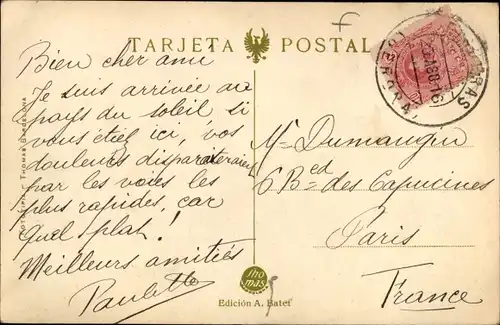 TARJETA POSTAL
Bien cher ami
Je suis arrivée au
pays du soleil si
vous étiez ici, vos
douleurs disparaiteraient
par les voies les
plus rapides, car
quel splat!
Meilleurs amitiés
Paulette
Mr Dumaugin
6 Bed des Capucines
Paris
France
FOTOTIPIA THOMAS BARCELONA
Thomas
Edición A. Batet